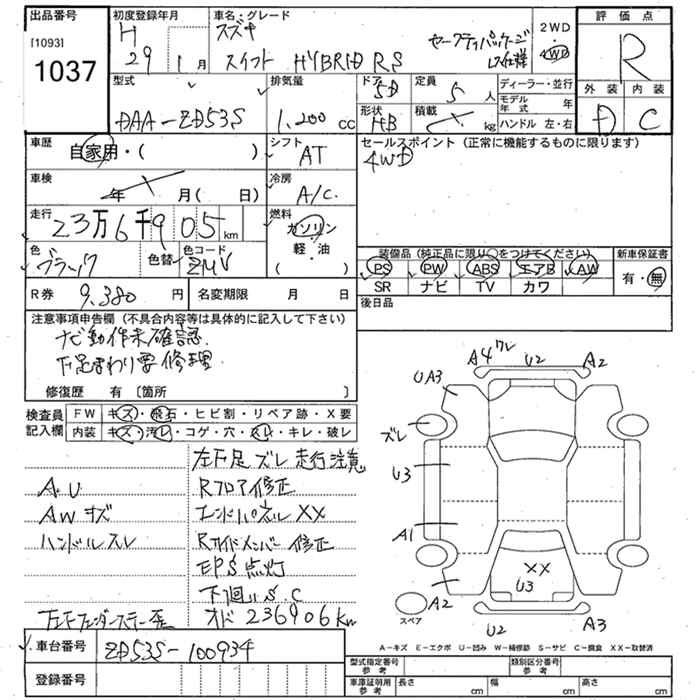 出品番号
[1093]
1037
初度登録年月
H 29年 1月
車名・グレード
スズキ
スイフト HYBRID RS
セーフティパッケージ
2WD
・
4WD
評価点
R
外装 内装
D C
型式
DAA-ZD53S
排気量
1.200 cc
ドア
5D
定員
5 人
ディーラー・並行
モデル年式 年
形状
HB
積載
kg
ハンドル 左・右
車歴
自家用・( )
シフト
AT
セールスポイント(正常に機能するものに限ります)
4WD
車検
年 月( 日)
冷房
A/C.
走行
23万6千905 km
燃料
ガソリン
軽・油
( )
色
ブラック
色替
色コード
ZMV
装備品(純正品に限り○をつけてください)
PS PW ABS エアB AW
SR ナビ TV カワ
新車保証書
有・無
R券 9.380 円
名変期限 月 日
後日品
注意事項申告欄(不具合内容等は具体的に記入して下さい)
ナビ動作未確認
下足まわり要修理
修復歴 有 〔箇所 〕
検査員記入欄
FW キズ・飛石・ヒビ割・リペア跡・X要
内装 キズ・汚レ・コゲ・穴・スレ・キレ・破レ
左下足ズレ 走行注意
A.U
Rフロア修正
AWキズ
エンドパネルXX
ハンドルスレ
Rサイドメンバー修正
EPS点灯
下廻りS.C
左Fフェンダーステー歪
オド236906km
A4ワレ
U2
A2
UA3
ズレ
U3
A1
XX
U3
A2
U2
A3
スペア
A-キズ E-エクボ U-凹み W-補修跡 S-サビ C-腐食 XX-取替済
車台番号 ZD53S-100934
登録番号
型式指定番号 参考
類別区分番号 参考
車庫証明用 参考
長さ cm 幅 cm 高さ cm